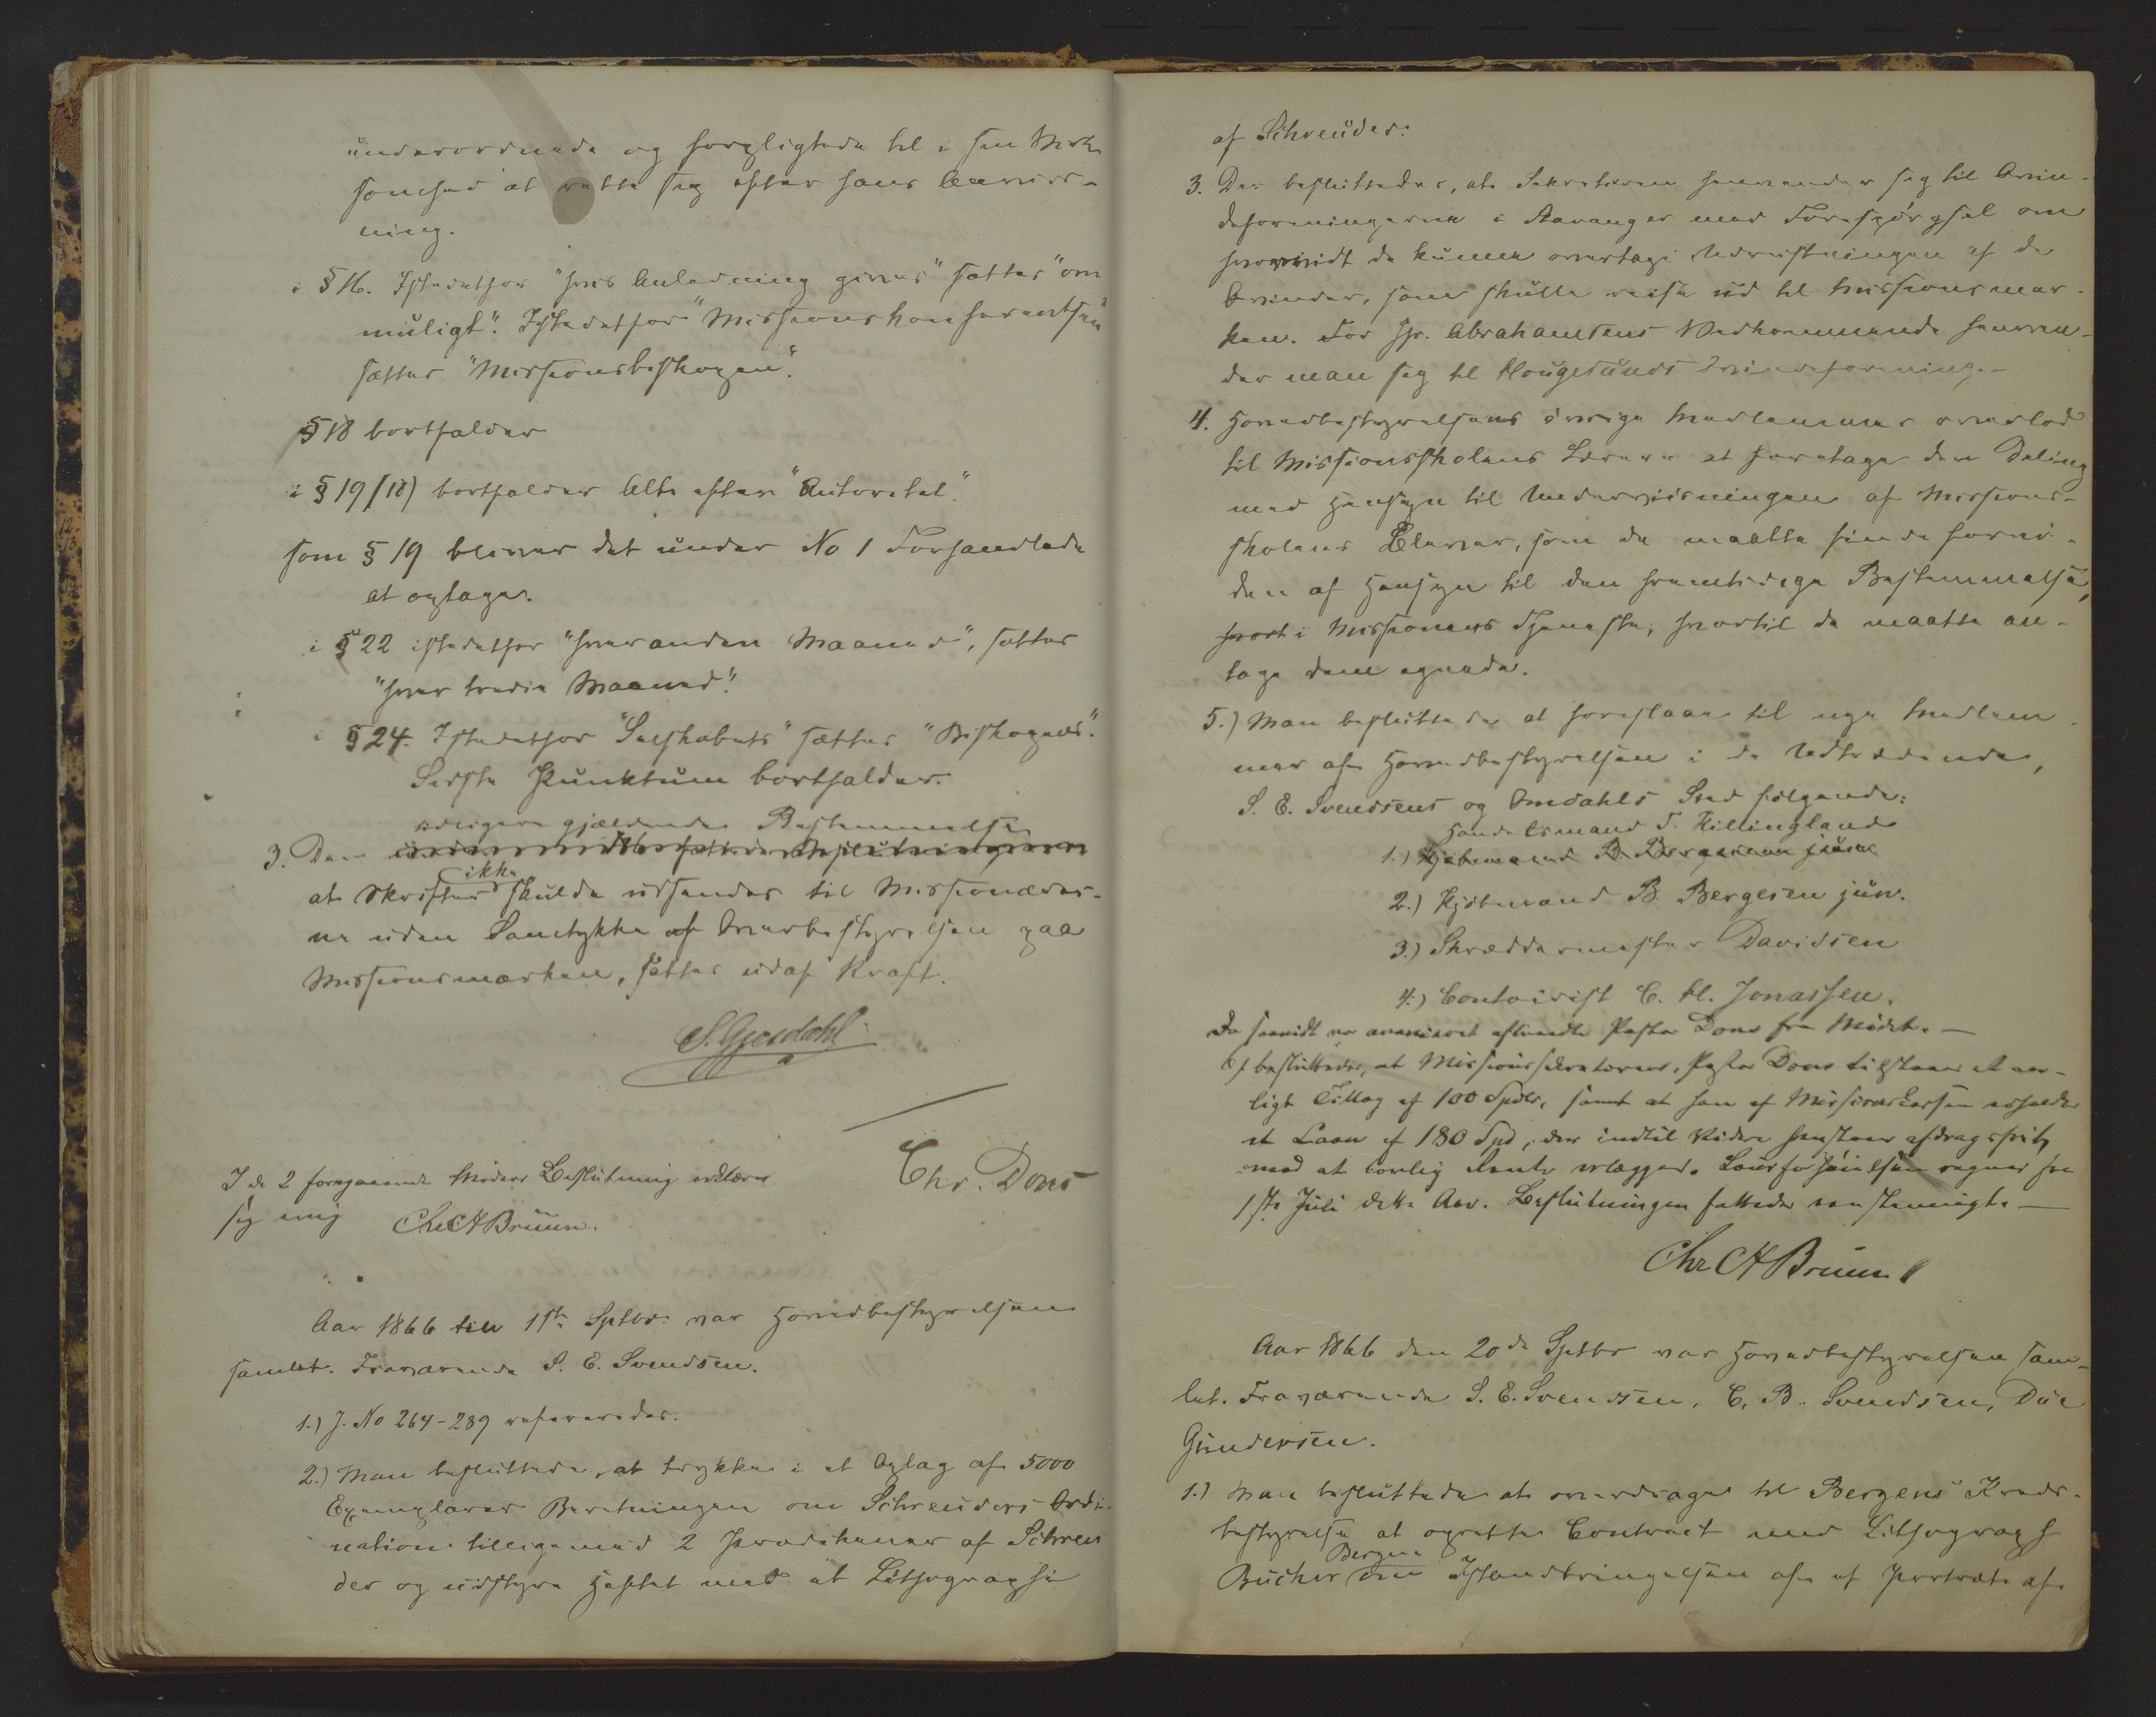 underordnede og forpligtede til i sin Virk-
somhed at rette sig efter hans Anvis-
ning.
i § 16. Istedetfor "hvis Anledning gives" sættes "om
muligt". Istedetfor "Missionskonferentsen"
sættes "Missionsbiskopen".
§ 18 bortfalder
i § 19 (18) bortfalder Alt efter "Antoretat".
som § 19 bliver det under No 1 Forhandlede
at optage.
i § 22 istedetfor "hver anden Maaned", sættes
"hver tredie Maaned".
i § 24. Istedetfor "Selskabets" sættes "Biskopens".
Sidste Punktum bortfalder.
tidligere gjældende Bestemmelse
3. Den
ikke
at Skrifter skulde udsendes til Missionærer-
ne uden Samtykke af Overbestyrelsen paa
Missionsmarken, sættes ud af Kraft.
S. Gjerdahl
Chr. Dons
I de 2 foregaaende Møders Beslutning erklærer
sig enig Chr A Bruun.
Aar 1866 den 1ste Sptbr. var Hovedbestyrelsen
samlet. Fraværende S. E. Svendsen.
1.) J. No 264-289 refereredes.
2.) Man besluttede, at trykke i et Oplag af 5000
Exemplarer Beretningen om Schreuders Ordi-
nation tilligemed 2 Prædikener af Schreu
der og udstyre Heftet med et Lithographi
af Schreuder.
3. Der besluttedes, at Sekretæren henvender sig til Qvin-
deforeningerne i Stavanger med Forespørgsel om
hvorvidt de kunne overtage Udrustningen af de
Qvinder, som skulle reise ud til Missionsmar-
ken. For Jfr. Abrahamsens Vedkommende henven-
der man sig til Hougesunds Qvindeforening.-
4. Hovedbestyrelsens øvrige Medlemmer overlod
til Missionsskolens Lærere at foretage den Deling
med Hensyn til Undervisningen af Missions-
skolens Elever, som de maatte finde fornø-
den af Hensyn til den fremtidige Bestemmelse,
hvort i Missionens Tjeneste, hvortil de maatte an-
tage dem egnede.
5.) Man besluttede at foreslaa til nye Medlem-
mer af Hovedbestyrelsen i de Udtrædende,
S. E. Svendsens og Omdahls Sted følgende:
Handelsmand T. Killingland
1.) Kjøbmand B. Bergesen jun.
2.) Kjøbmand B. Bergesen jun.
3.) Skræddermester Davidsen
4.) Contoirist C. H. Jonassen.
Da saavidt var avanceret aftraadte Pastor Dons fra Mødet.—
Og besluttedes, at Missionssekretæren, Pastor Dons tilstaaes et aar-
ligt Tillæg af 100 Spdlr, samt at han af Missionskassen erholder
et Laan af 180 Spd, der indtil Videre henstaar afdragsfrit,
mod at lovlig Rente erlægges. Lønsforhøielsen regnes fra
1ste Juli dette Aar. Beslutningen fattedes eenstemmigt.—
Chr A Bruun
Aar 1866 den 20de Sptbr var Hovedbestyrelsen sam-
let. Fraværende S. E. Svendsen, C. B. Svendsen, Due
Gundersen.
1.) Man besluttede at overdrage til Bergens Kreds-
bestyrelse at oprette Contract med Lithograph
Bergen
Bucher om Istandbringelsen af et Portræt af